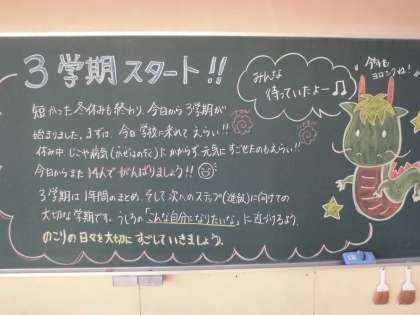 3学期スタート!!
みんな
待っていたよー♫
今年も
ヨロシクね!
短かった冬休みも終わり、今日から3学期が
始まりました。まずは、今日学校に来れてえらい!!
休み中、じこや病気(かぜはのぞく)にかからず、元気にすごせたのもえらい!!
今日からまた がんばりましょう!!
3学期は1年間のまとめ、そして次へのステップ(進級)に向けての
大切な学期です。うしろの「こんな自分になりたいな」に近づけるよう、
のこりの日々を大切にすごしていきましょう。